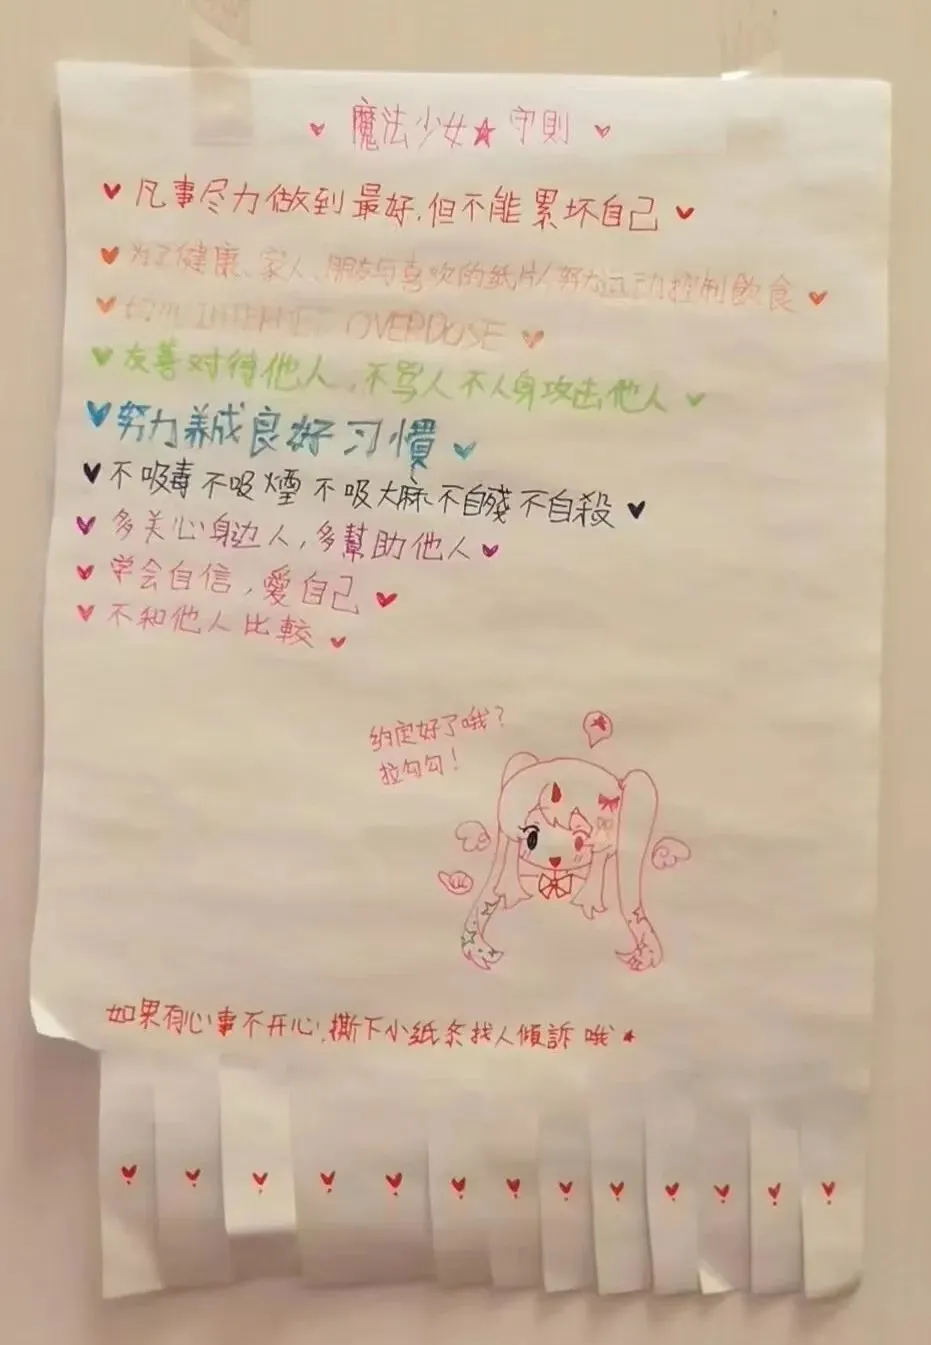 魔法少女★守則
凡事尽力做到最好,但不能累坏自己
为了健康、家人、朋友与喜欢的纸片人努力运动控制飲食
INTERNET OVERDOSE
友善对待他人,不骂人不人身攻击他人
努力养成良好习慣
不吸毒不吸煙不吸大麻不自殘不自殺
多关心身边人,多幫助他人
学会自信,愛自己
不和他人比較
约定好了哦?
拉勾勾!
如果有心事不开心,撕下小纸条找人傾訴哦★